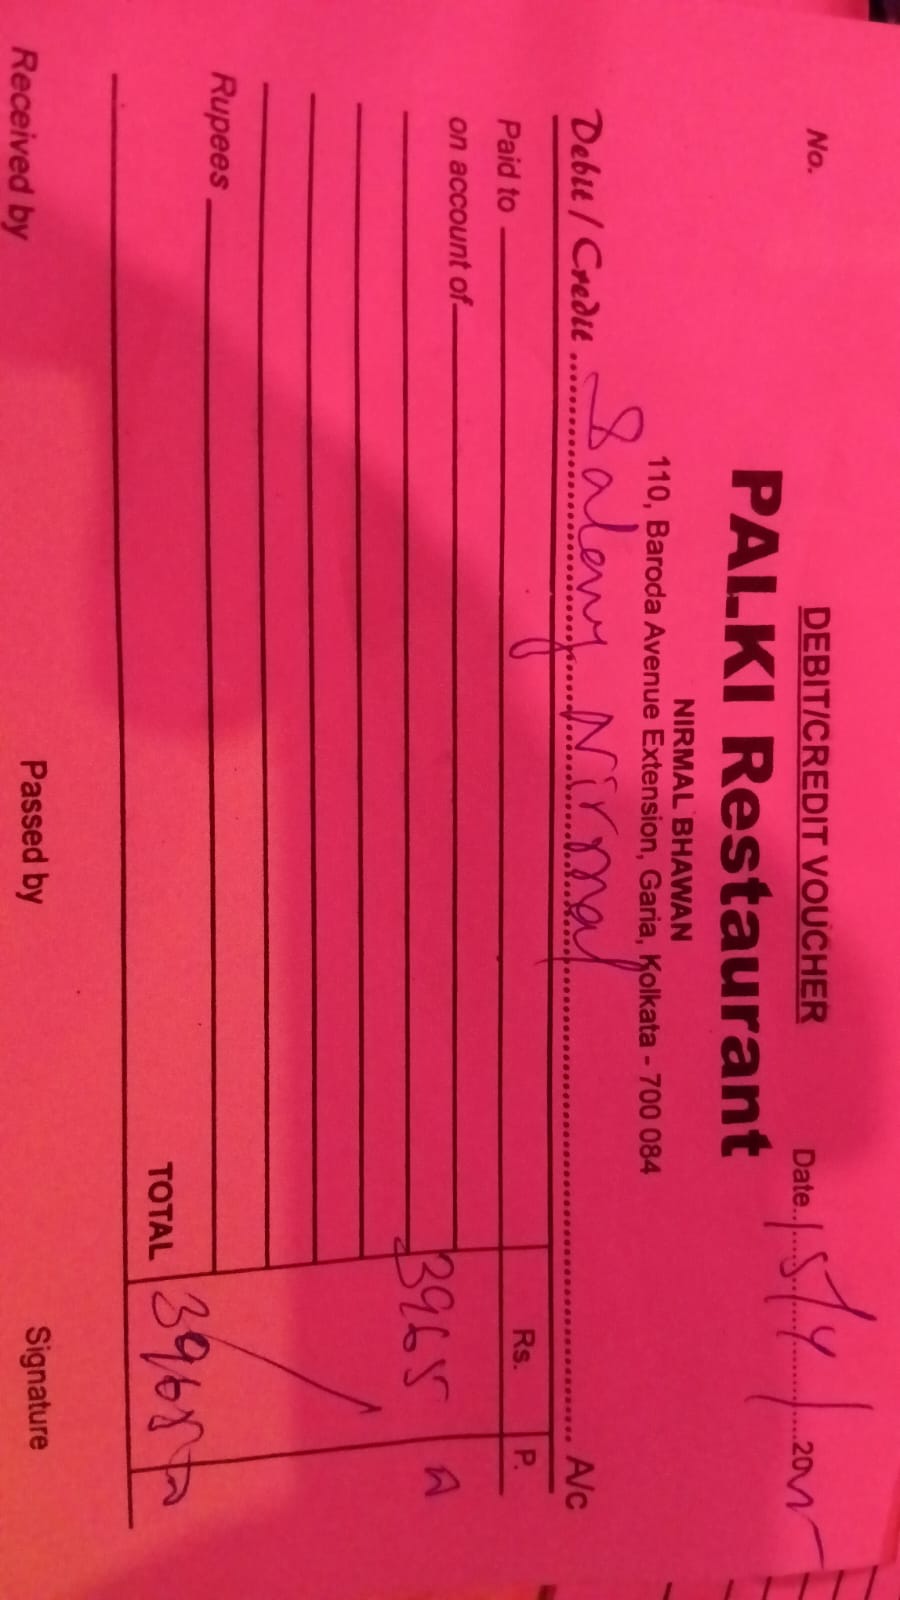 DEBIT/CREDIT VOUCHER
No. Date
PALKI Restaurant
NIRMAL BHAWAN
110, Baroda Avenue Extension, Garia, Kolkata - 700 084
Debit / Credit Salary Nirmal A/c
Paid to Rs. P.
on account of
3965
Rupees
TOTAL 3965
Received by Passed by Signature